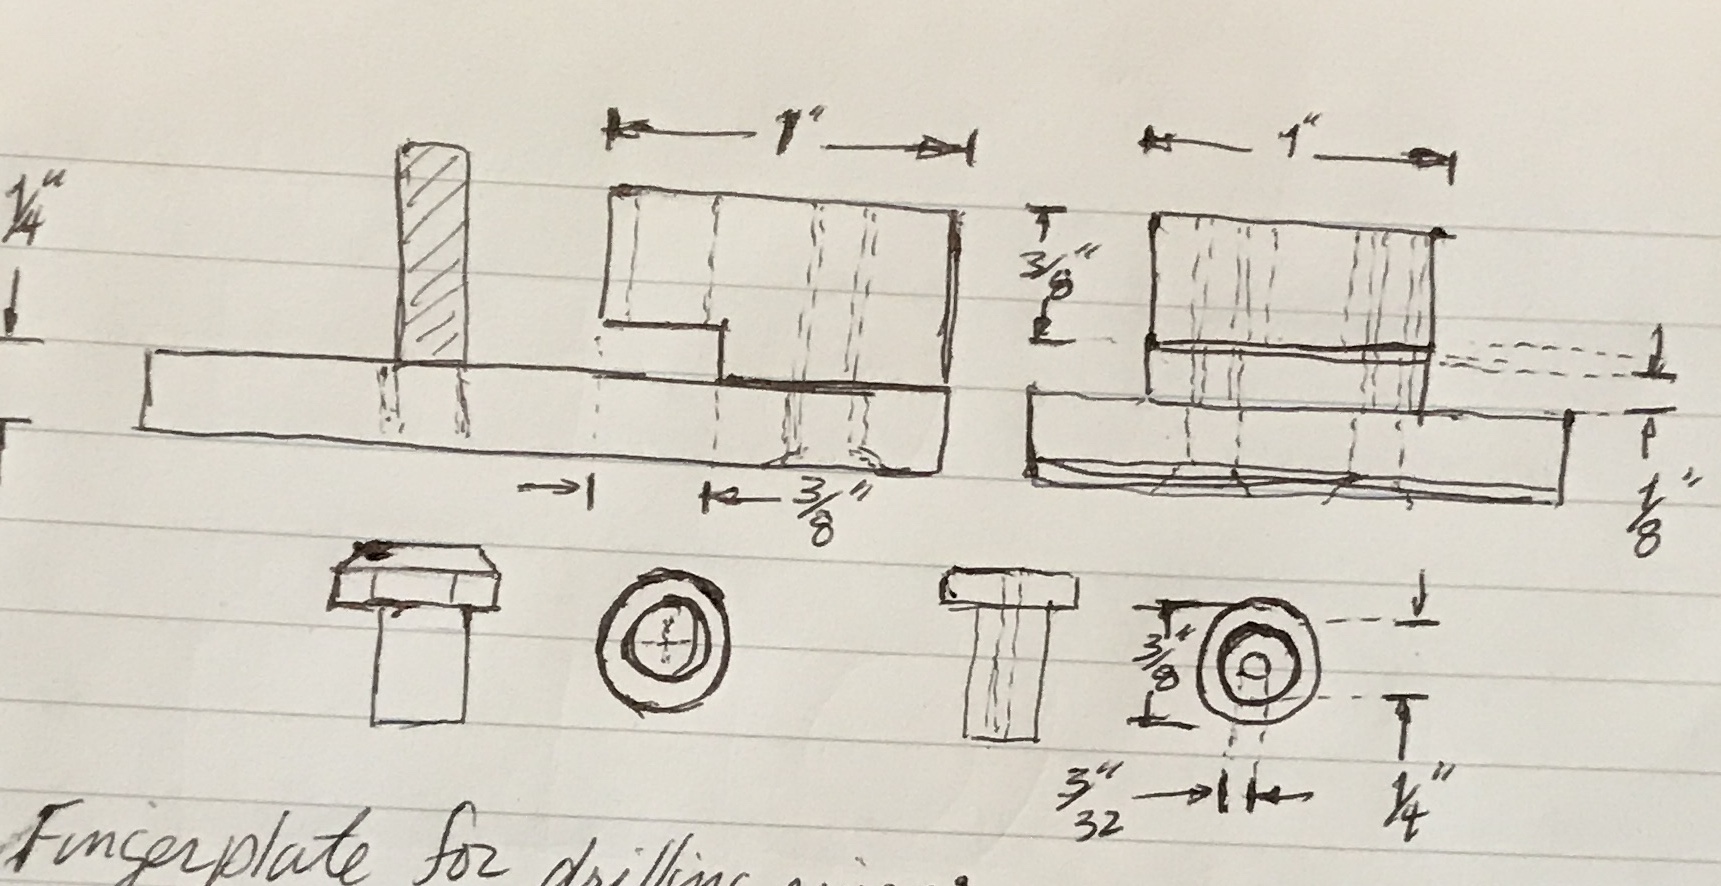 1" 1"
1/4"
3/8"
3/8"
1/8"
3/8"
3/32" 1/4"
Fingerplate for drilling